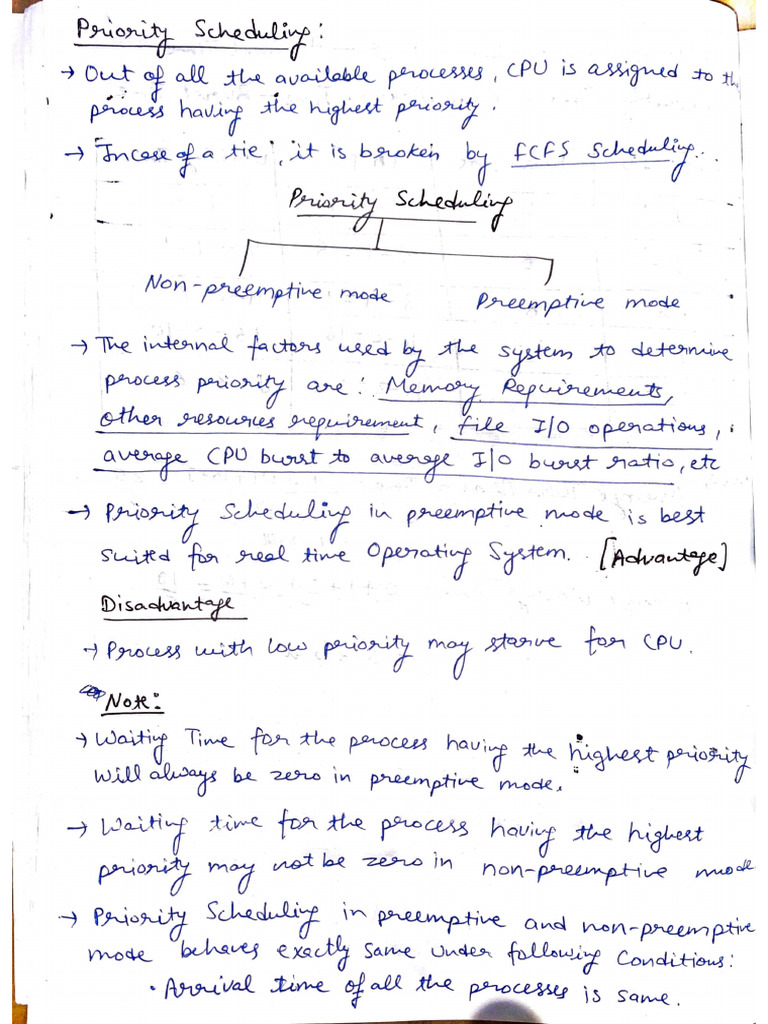 Priority Scheduling:
→ Out of all the available processes, CPU is assigned to the
process having the highest priority.
→ Incase of a tie, it is broken by FCFS Scheduling.
Priority Scheduling
Non-preemptive mode
Preemptive mode
→ The internal factors used by the system to determine
process priority are: Memory Requirements,
other resources requirement, file I/O operations,
average CPU burst to average I/O burst ratio, etc
→ Priority Scheduling in preemptive mode is best
suited for real time Operating System. [Advantage]
Disadvantage
→ Process with low priority may starve for CPU.
Note:
→ Waiting Time for the process having the highest priority
will always be zero in preemptive mode.
→ Waiting time for the process having the highest
priority may not be zero in non-preemptive mode
→ Priority Scheduling in preemptive and non-preemptive
mode behaves exactly same under following Conditions:
• Arrival time of all the processes is same.